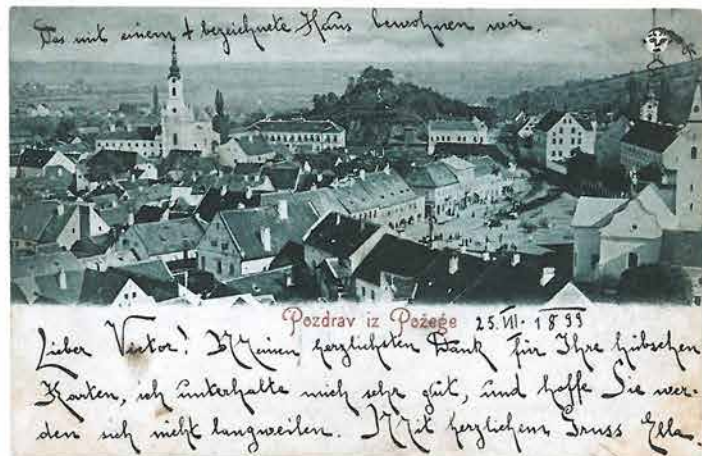 Das mit einem + bezeichnete Haus bewohnen wir.
Pozdrav iz Požege 25. VII. 1899
Lieber Victor! Meinen herzlichsten Dank für Ihre hübschen
Karten, ich unterhalte mich sehr gut, und hoffe Sie wer-
den sich nicht langweilen. Mit herzlichem Gruss Ella.